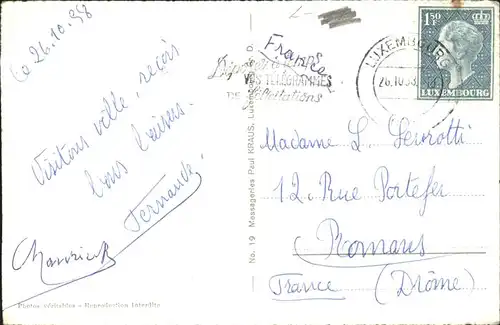 Le 26.10.58
Visitons ville, reçois
bons baisers.
Fernande.
Photos véritables - Reproduction Interdite
No. 19 Messageries Paul KRAUS, Luxembourg
France
VOS TELEGRAMMES
DE félicitations
LUXEMBOURG
26.10.58
1F50
LUXEMBOURG
Madame L.
12, Rue Portefer
Romans
France (Drôme)